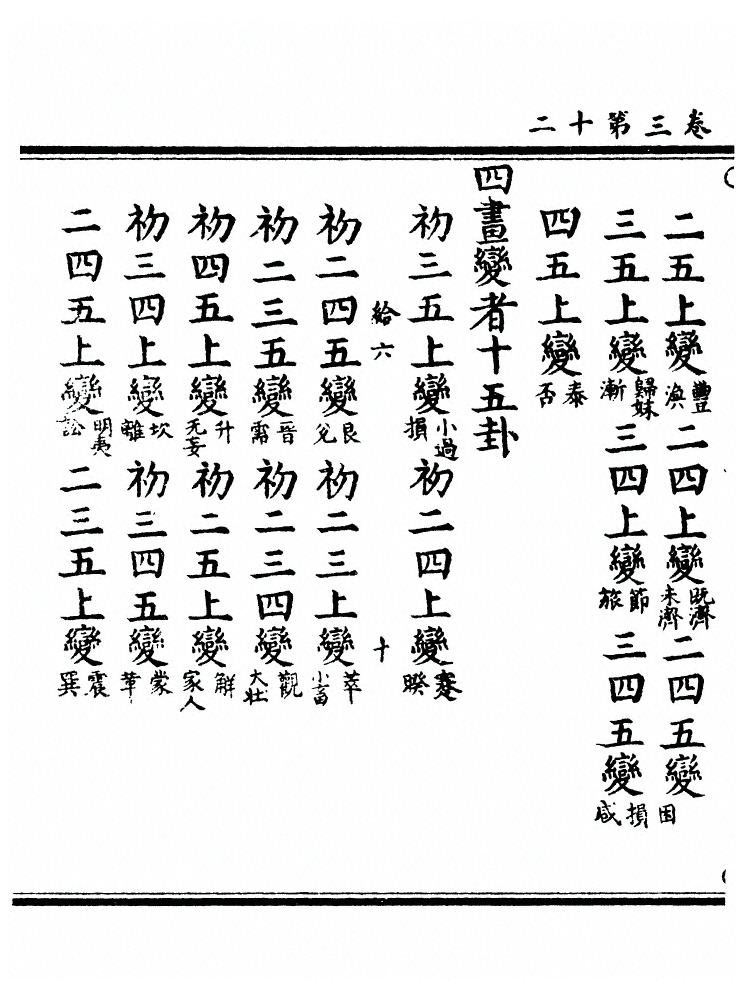 卷三第十二
二五上變豐渙二四上變既濟未濟二四五變困
三五上變歸妹漸三四上變節旅三四五變損咸
四五上變泰否
四畫變者十五卦
初三五上變小過損初二四上變蹇睽
給六十
初二四五變艮兌初二三上變萃小畜
初二三五變晉需初二三四變觀大壯
初四五上變升无妄初二五上變解家人
初三四上變坎離初三四五變蒙革
二四五上變明夷訟二三五上變震巽